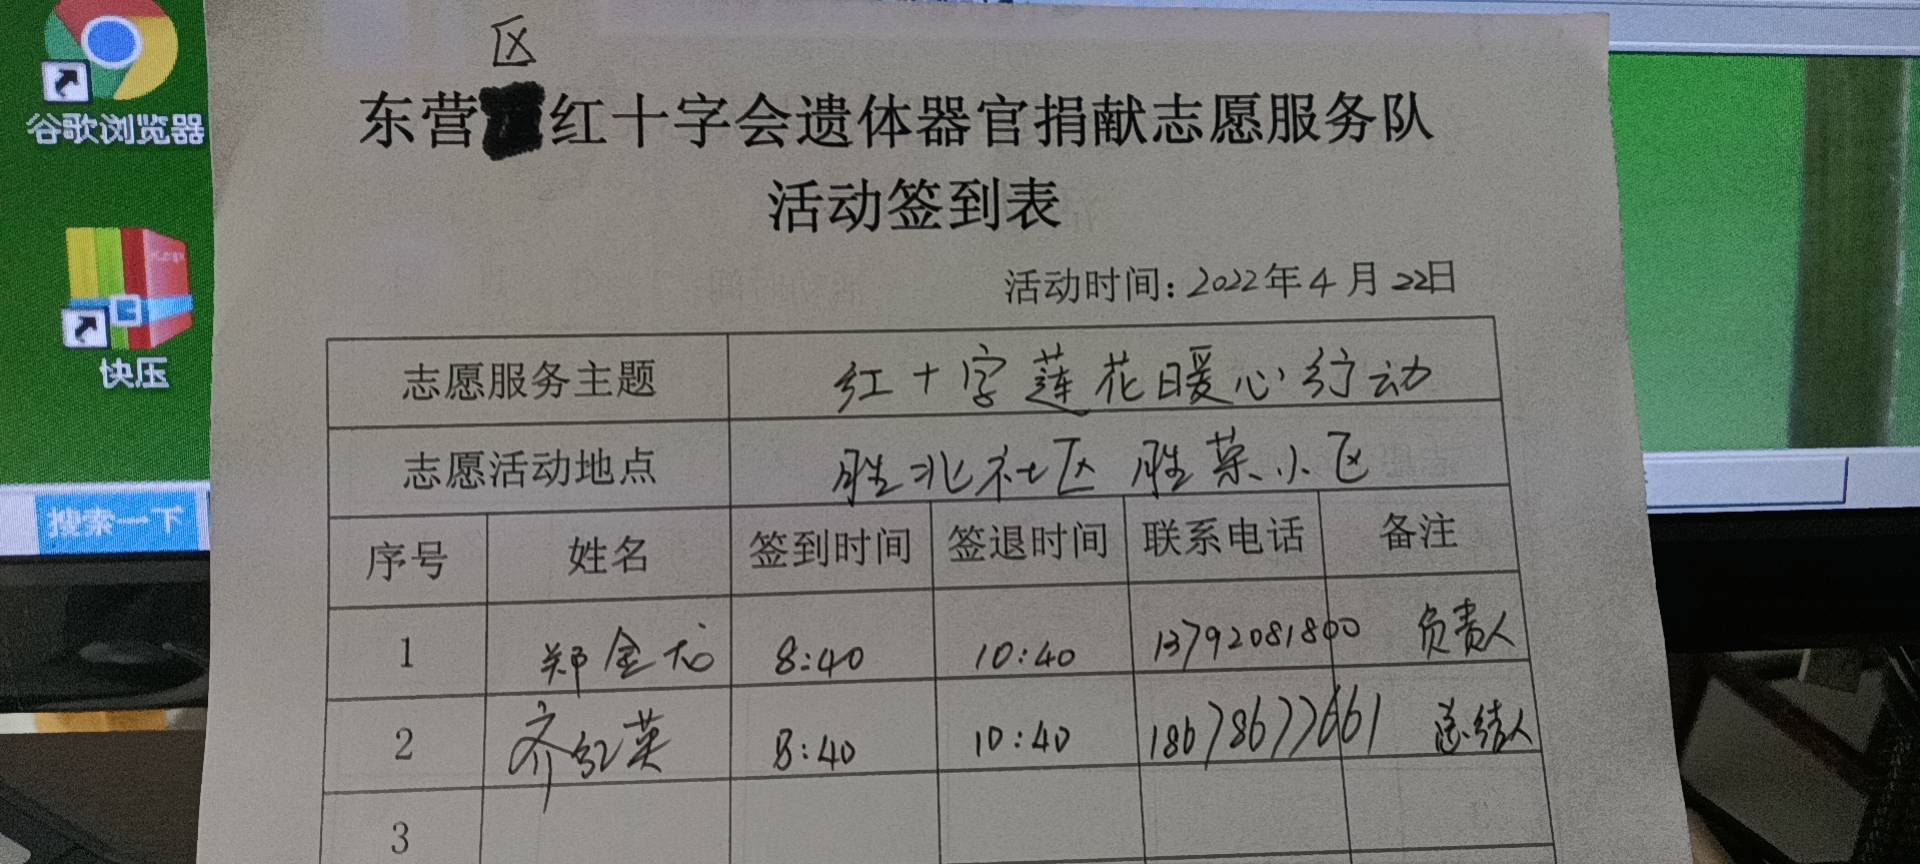 谷歌浏览器
快压
搜索一下
区
东营红十字会遗体器官捐献志愿服务队
活动签到表
活动时间：2022年4月22日
志愿服务主题 红十字莲花暖心行动
志愿活动地点 胜北社区 胜荣小区
序号 姓名 签到时间 签退时间 联系电话 备注
1 郑金龙 8:40 10:40 13792081800 负责人
2 齐红英 8:40 10:40 18678677661 总结人
3